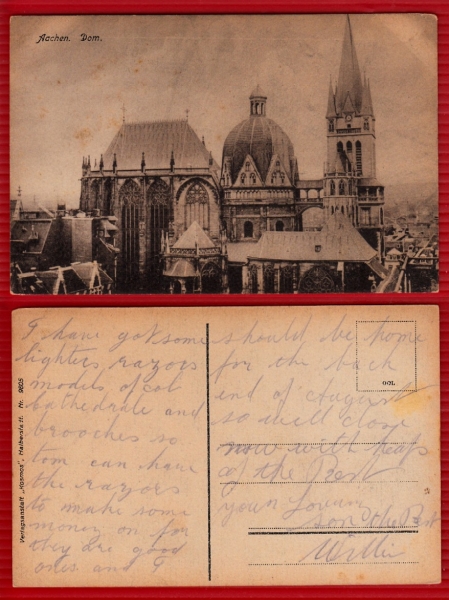 Aachen. Dom.
I have got some
lighters, razors
models of
cathedrale and
brooches so
tom can have
the razors
to make some
money on for
they are good
ones and I
should be home
for the back
end of August
so will close
now with heaps
of the Best
your Loving
son
Willie
Verlagsanstalt „Kosmos“, Halberstadt. Nr. 9805